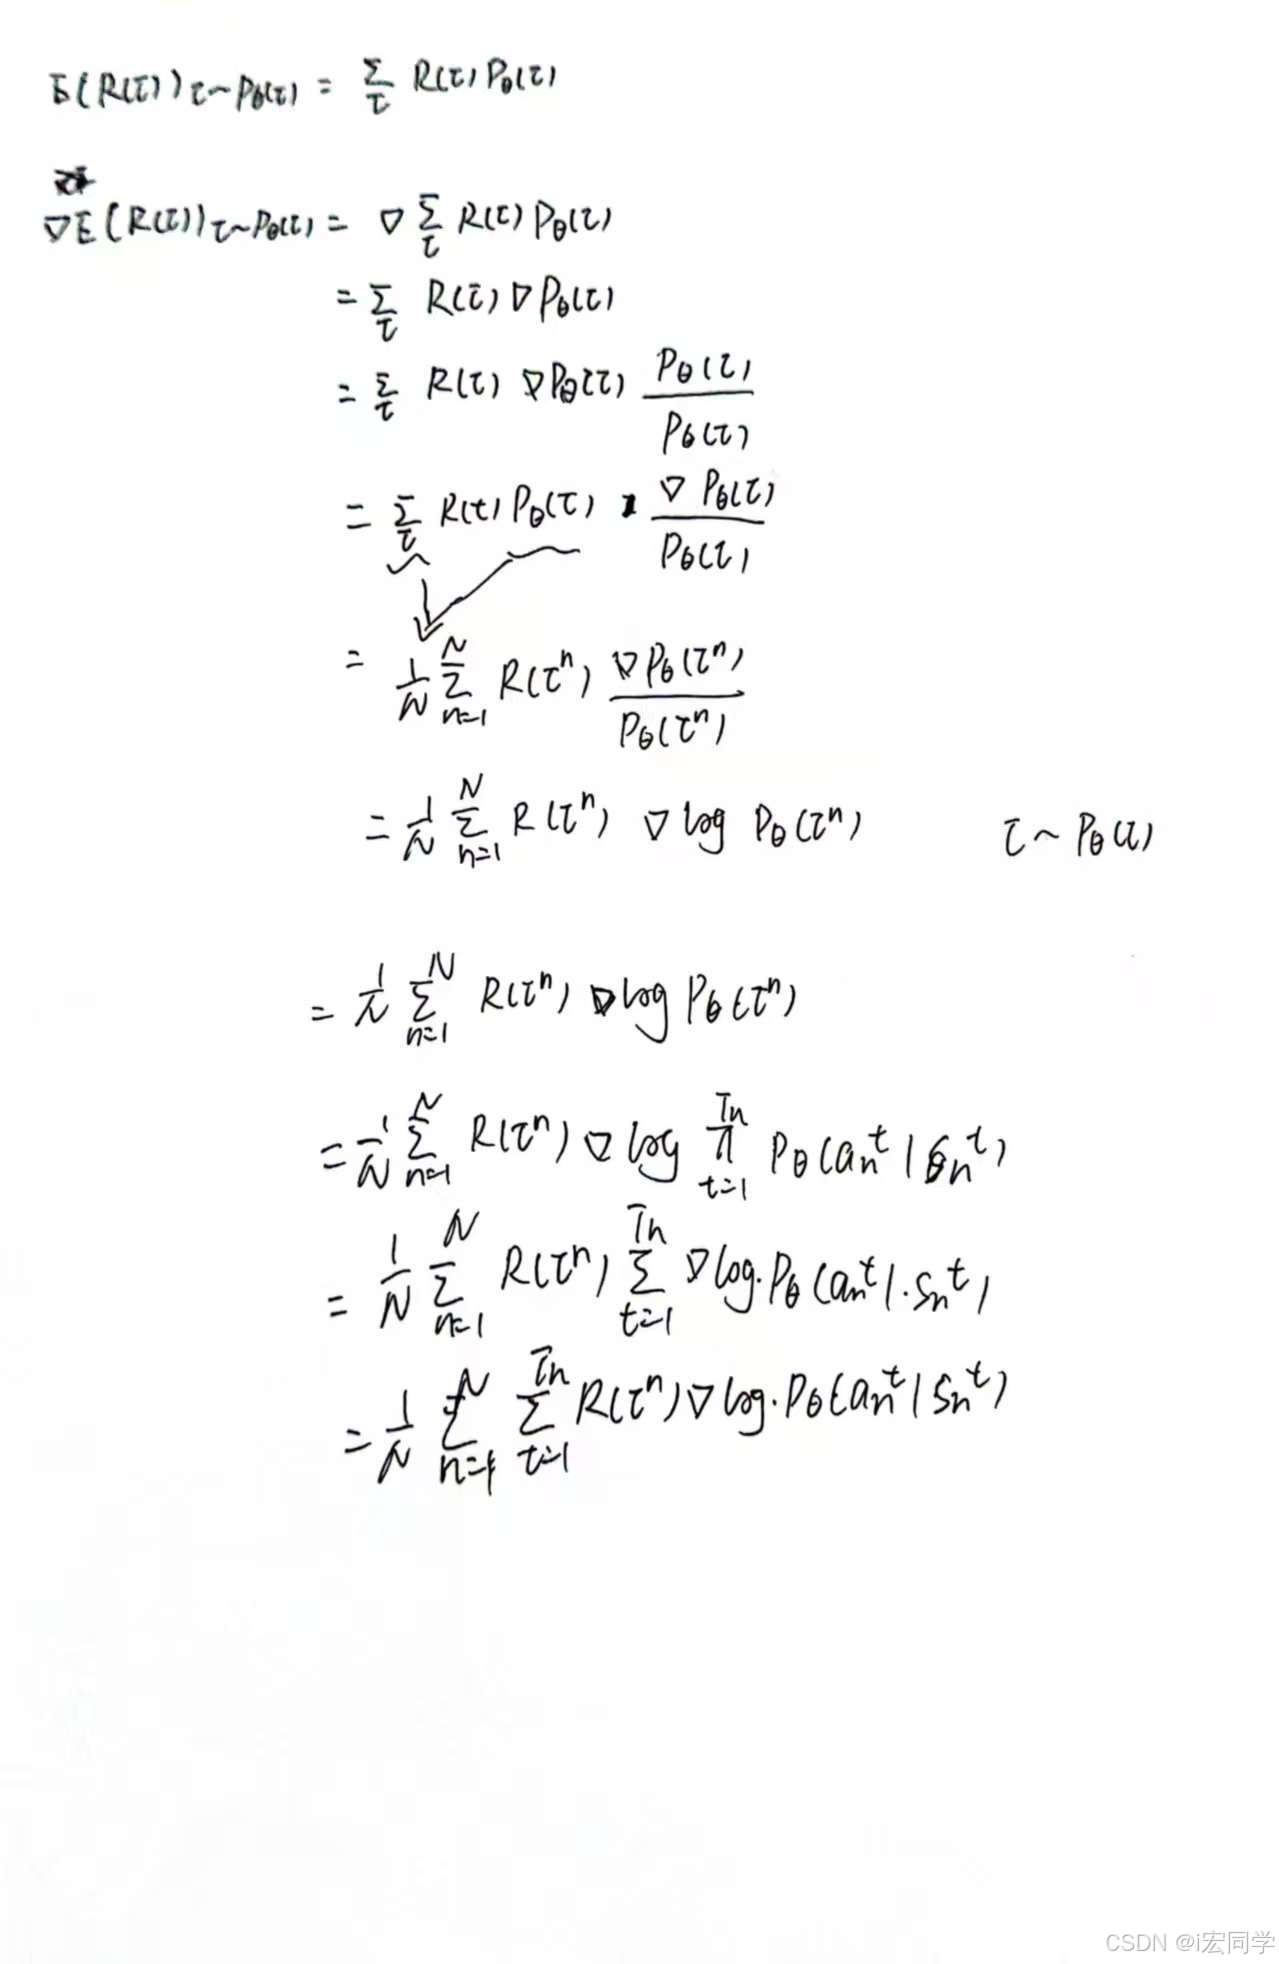 E(R(τ))τ~Pθ(τ) = Σ_τ R(τ) Pθ(τ)
∇E(R(τ))τ~Pθ(τ) = ∇ Σ_τ R(τ) Pθ(τ)
= Σ_τ R(τ) ∇Pθ(τ)
= Σ_τ R(τ) ∇Pθ(τ) Pθ(τ) / Pθ(τ)
= Σ_τ R(τ) Pθ(τ) · ∇Pθ(τ) / Pθ(τ)
= 1/N Σ_{n=1}^{N} R(τ^n) ∇Pθ(τ^n) / Pθ(τ^n)
= 1/N Σ_{n=1}^{N} R(τ^n) ∇ log Pθ(τ^n) τ ~ Pθ(τ)
= 1/N Σ_{n=1}^{N} R(τ^n) ∇ log Pθ(τ^n)
= 1/N Σ_{n=1}^{N} R(τ^n) ∇ log π_{t=1}^{Tn} Pθ(a_n^t | s_n^t)
= 1/N Σ_{n=1}^{N} R(τ^n) Σ_{t=1}^{Tn} ∇ log·Pθ(a_n^t |·s_n^t)
= 1/N Σ_{n=1}^{N} Σ_{t=1}^{Tn} R(τ^n) ∇ log·Pθ(a_n^t | s_n^t)
CSDN @i宏同学